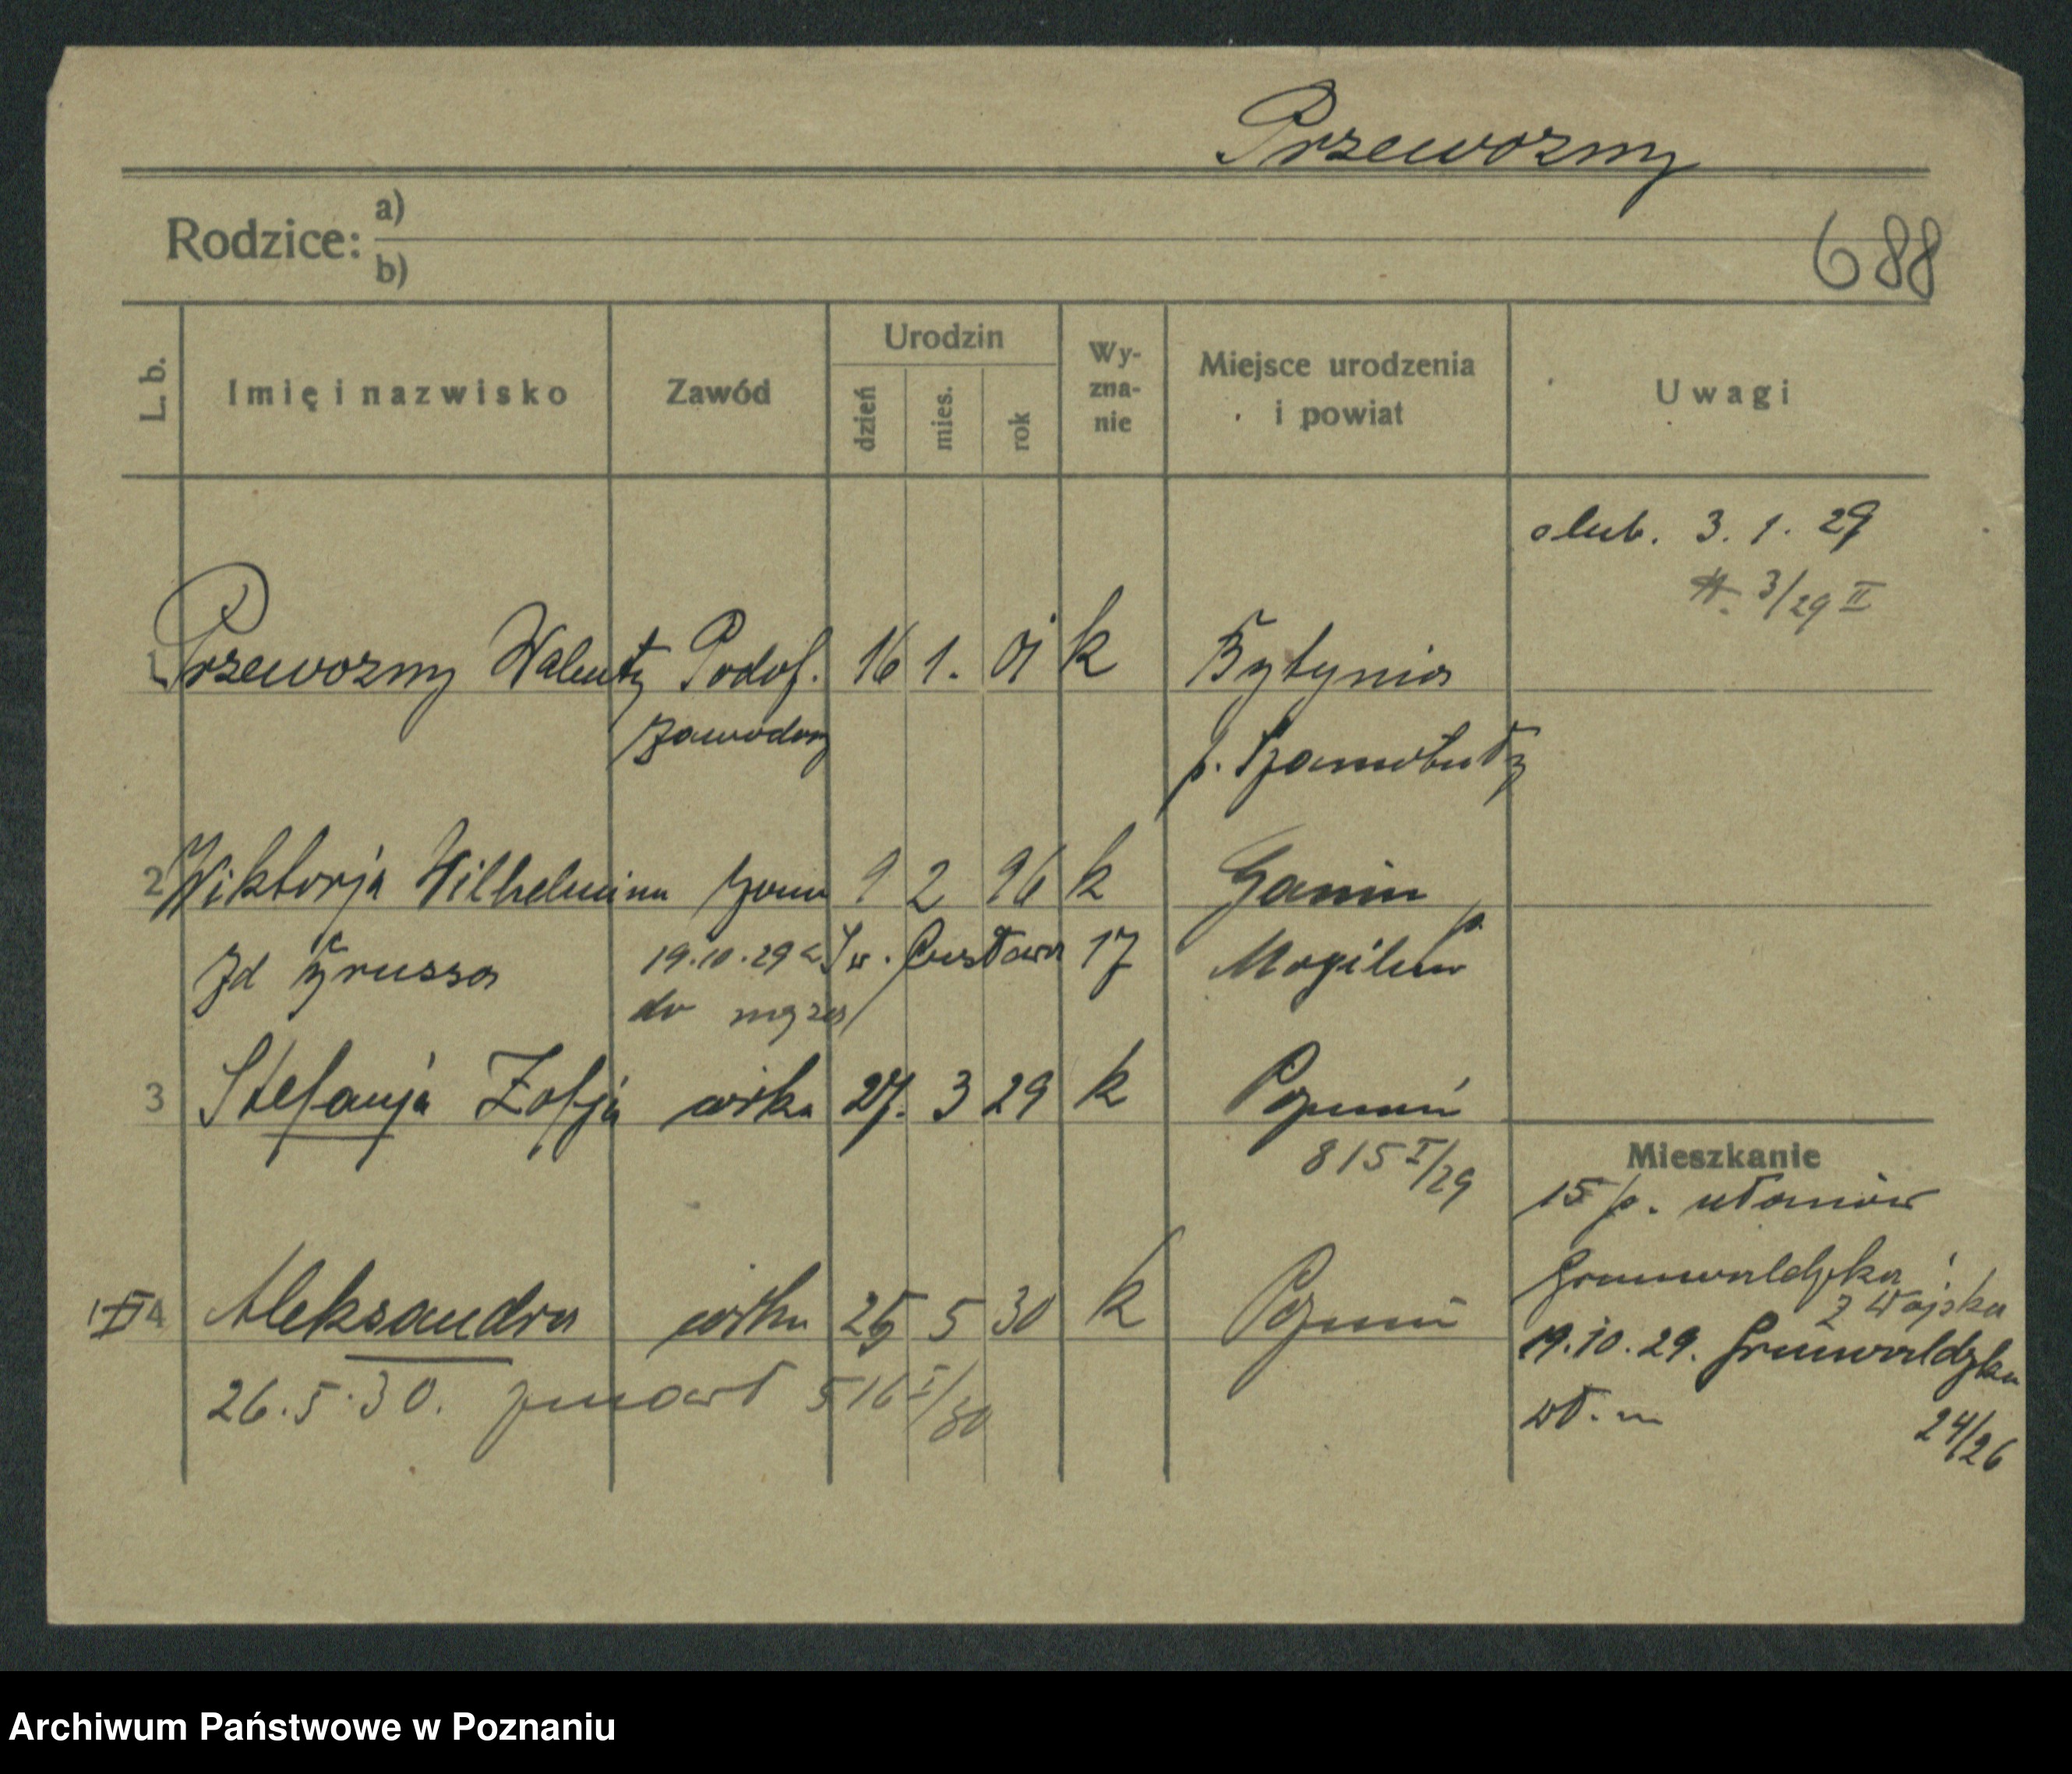 Przewozny
Rodzice: a)
b)
688
L. b.
Imię i nazwisko
Zawód
Urodzin
dzień
mies.
rok
Wy-
zna-
nie
Miejsce urodzenia
i powiat
Uwagi
slub. 3. 1. 29
3/29 II
1 Przewozny Walenty Podof. 16 1. 01 k Bytynia
zawodowy p. Szamotuły
2 Wiktorja Wilhelmina żona 9 2 96 k Ganin p.
zd Grussa 19.10.29 z Św. Czesława 17 Mogilno
do męża
3 Stefanja Zofja córka 27. 3 29 k Poznań
815 I/29
Mieszkanie
15 p. ułanów
Grunwaldzka
z wojska
4 Aleksandra córka 25 5 30 k Poznań
19.10.29. Grunwaldzka
26.5.30. zmarł 516 I/30
wł. m 24/26
Archiwum Państwowe w Poznaniu